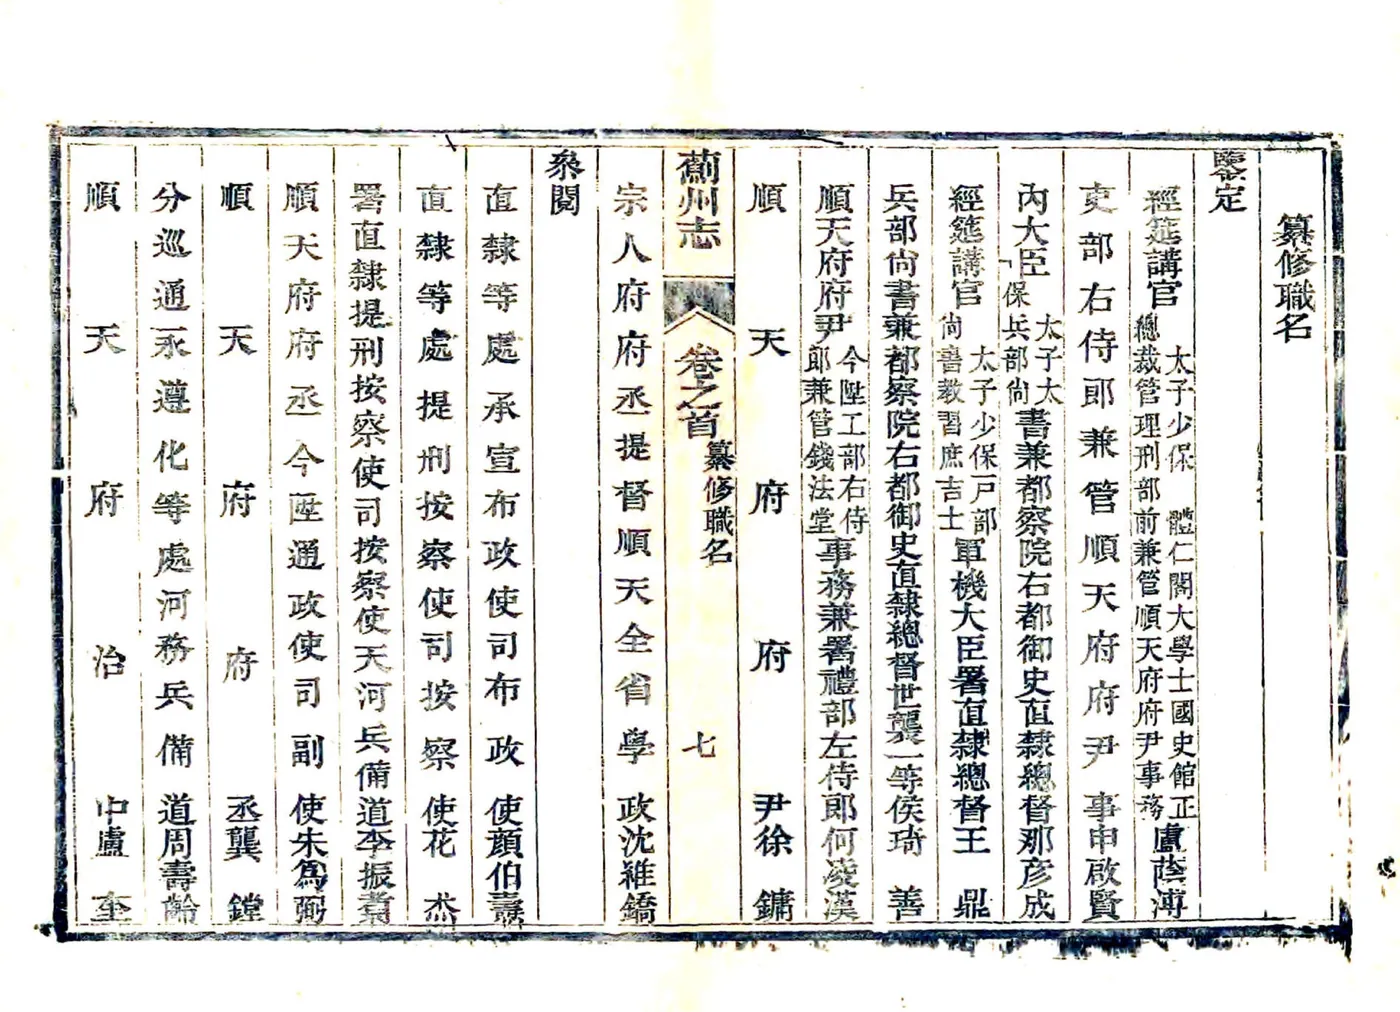 纂修職名
鑒定
經筵講官太子少保體仁閣大學士國史館正
總裁管理刑部前兼管順天府府尹事務盧蔭溥
吏部右侍郎兼管順天府府尹事申啟賢
內大臣太子太
保兵部尚書兼都察院右都御史直隸總督那彥成
經筵講官太子少保戸部
尚書教習庶吉士軍機大臣署直隸總督王鼎
兵部尚書兼都察院右都御史直隸總督世襲一等侯琦善
順天府府尹今陞工部右侍
郎兼管錢法堂事務兼署禮部左侍郎何凌漢
順天府府尹徐鏞
薊州志
卷之首
纂修職名
七
宗人府府丞提督順天全省學政沈維鐈
叅閱
直隸等處承宣布政使司布政使顔伯燾
直隸等處提刑按察使司按察使花杰
署直隸提刑按察使司按察使天河兵備道李振翥
順天府府丞今陞通政使司副使朱爲弼
順天府府丞龔鏜
分巡通永遵化等處河務兵備道周壽齡
順天府治中盧奎